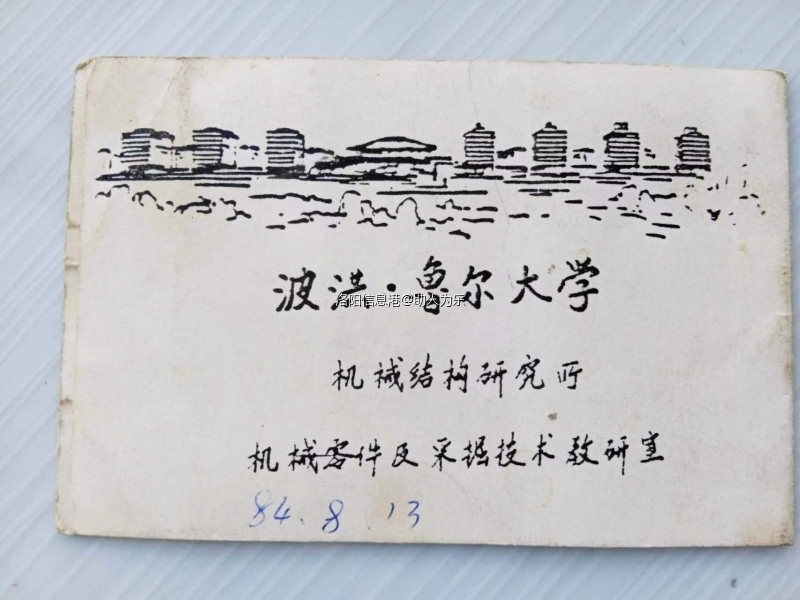 波洪·鲁尔大学
洛阳信息港@助人为乐
机械结构研究所
机械零件及采掘技术教研室
84.8.13